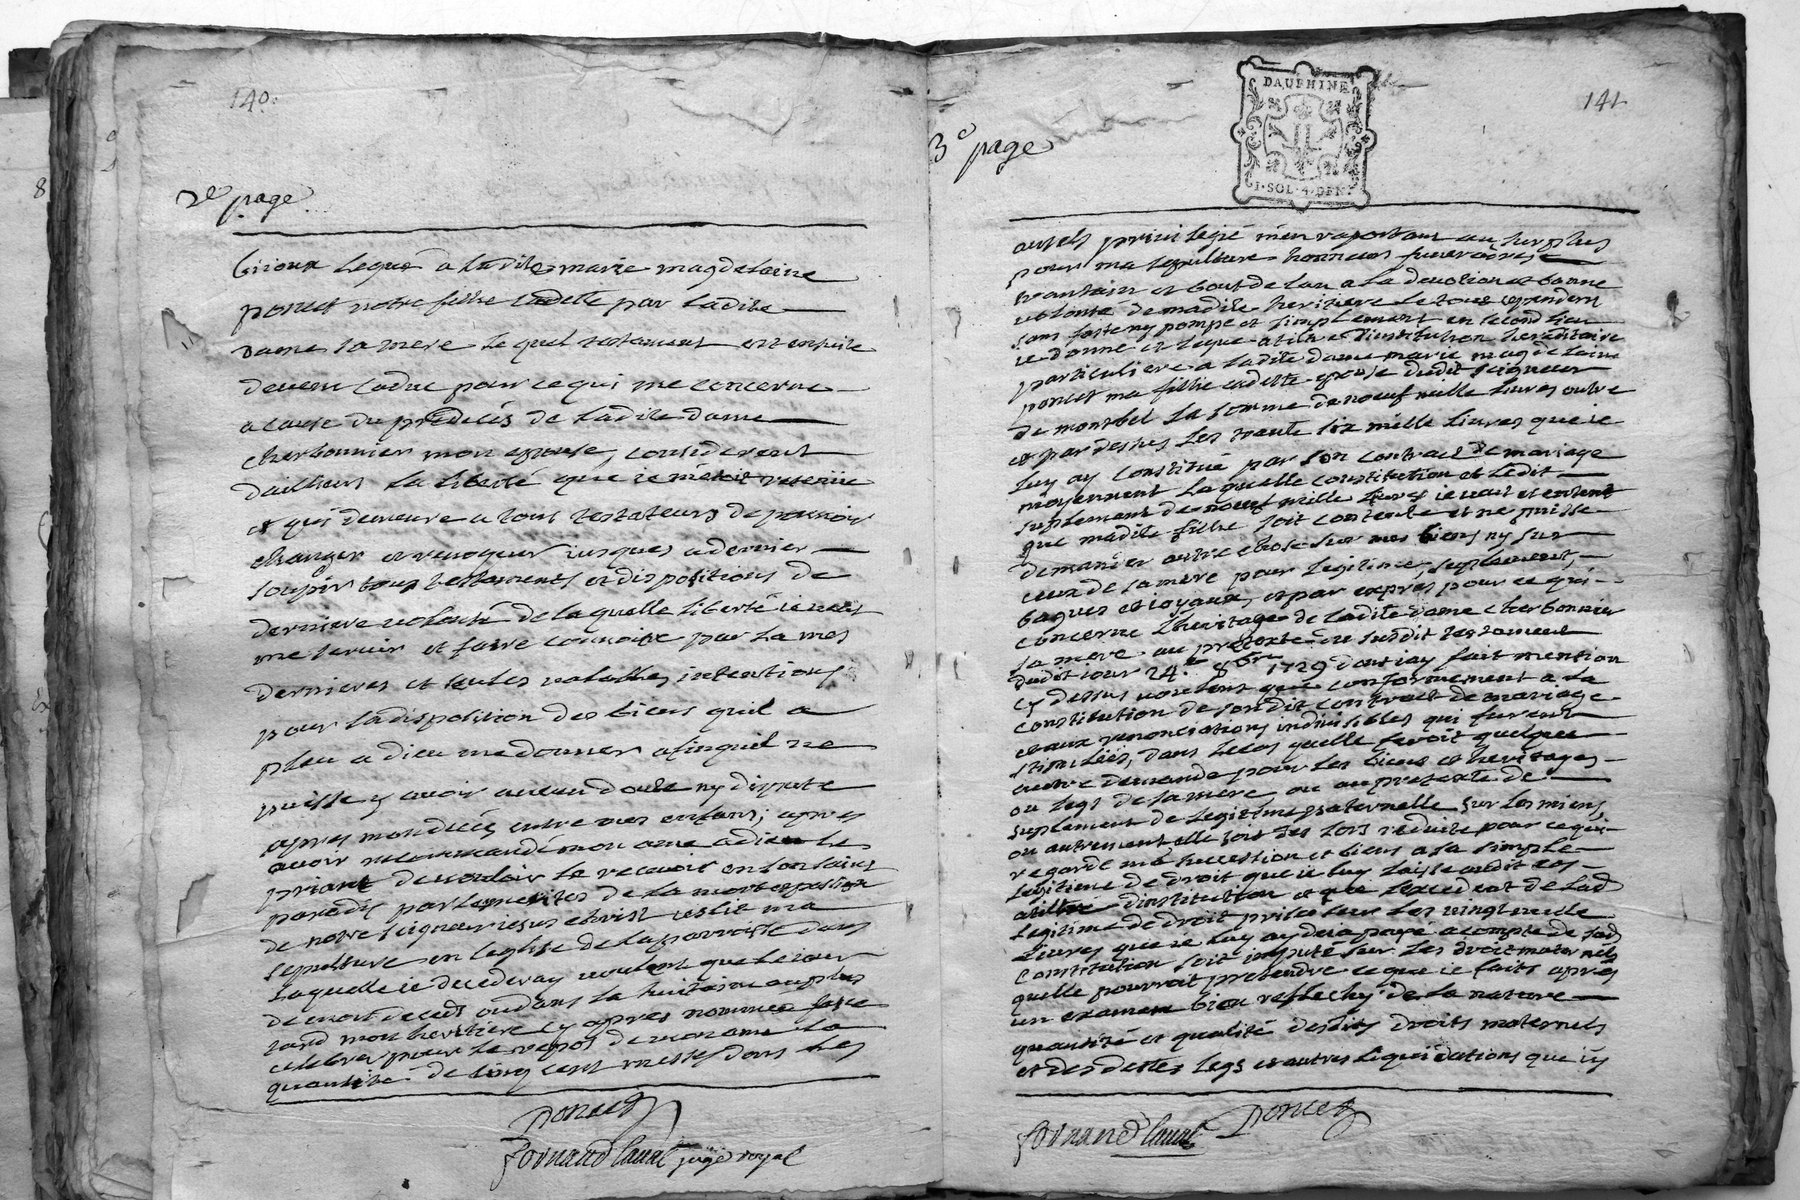 140.
2e page
bijoux legué a ladite marie magdelaine
poncet notre fille cadette par ladite
dame sa mere lequel testament est ensuite
devenu caduc pour ce qui me concerne
a cause du prédécés de ladite dame
cherbonnier mon epouse, considerent
dailleurs la liberté que je métoit reservée
et qui demeure a tous testateurs de pouvoir
changer et revoquer jusques a dernier
soupir tous testaments et dispositions de
derniere volonté de laquelle liberté je veus
me servir et faire connoitre par la mes
dernieres et seules valables intentions
pour la disposition des biens quil a
pleu a dieu me donner afinquil ne
puisse y avoir aucun doute ny dispute
apres mon décés entre mes enfans; apres
avoir recommandé mon ame a dieu le
priant de vouloir le recevoir en son saint
paradis par les merites de la mort et passion
de notre seigneur jesus christ jeslit ma
sepulture en leglise de la parroisse dans
laquelle je decederay voulant que le jour
de mon deced ou dans la huitaine au plus
tard mon heritiere cy apres nommée fasse
celebrer pour le repos de mon ame la
quantité de cinq cent messes dans les
poncet
fornand laval juge royal
141
DAUPHINE
1·SOL·4·DEN.
3e page
autels privilegié men raportant au surplus
pour ma sepulture honneurs funeraires
trantain et bout de lan a la devotion et bonne
volonté de madite heritiere le tout cependent
sans faste ny pompe et simplement en second lieu
je donne et legue a tiltre dinstitution hereditaire
particuliere a ladite dame marie magdelaine
poncet ma fille cadette epouse dudit seigneur
de montbel la somme de noeuf mille livres outre
et par dessus les trante six mille livres que je
luy ay constitué par son contract de mariage
moyennent laquelle constitution et ledit
suplement de noeuf mille livres je veus et entent
que madite fille soit contente et ne puisse
demander autre chose sur mes biens ny sur
ceux de sa mere pour legitime, suplement,
bagues et joyaux, et par exprés pour ce qui
concerne lheritage de ladite dame cherbonnier
sa mere au pretexte du susdit testament
dudit jour 24.e 8bre 1729 dont jay fait mention
cy dessus voulent que conformement a la
constitution de sondit contract de mariage
et aux renonciations indivisibles qui furent
stipuléés, dans le cas quelle feroit quelque
autre demande pour les biens et heritages
ou legs de sa mere ou au pretexte de
suplement de legitime paternelle sur les miens,
ou autrement elle soit des lors reduite pour ce qui
regarde ma succession et biens a sa simple
legitime de droit que je luy laisse audit cas
a tiltre dinstitution et que lexcedent de lad
legitime de droit pris sur les vingt mille
livres que je luy ay deja payé a compte de sad
constitution soit imputé sur les droit maternels
quelle pourroit pretendre ce que je fait aprés
un examen bien reflechy de la nature
quantité et qualité desdits droits maternels
et des dettes legs et autres liquidations que jy
fornand laval poncet